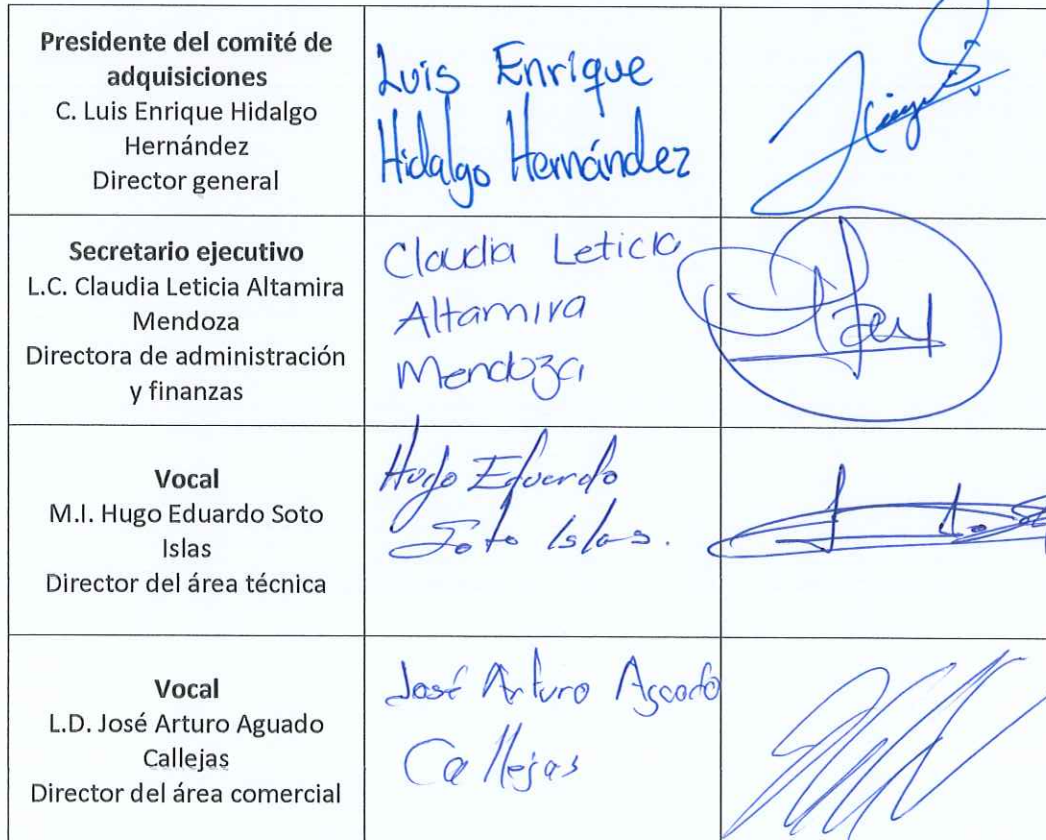 Presidente del comité de
adquisiciones
C. Luis Enrique Hidalgo
Hernández
Director general
Luis Enrique
Hidalgo Hernández
Secretario ejecutivo
L.C. Claudia Leticia Altamira
Mendoza
Directora de administración
y finanzas
Claudia Leticia
Altamira
Mendoza
Vocal
M.I. Hugo Eduardo Soto
Islas
Director del área técnica
Hugo Eduardo
Soto Islas.
Vocal
L.D. José Arturo Aguado
Callejas
Director del área comercial
José Arturo Aguado
Callejas